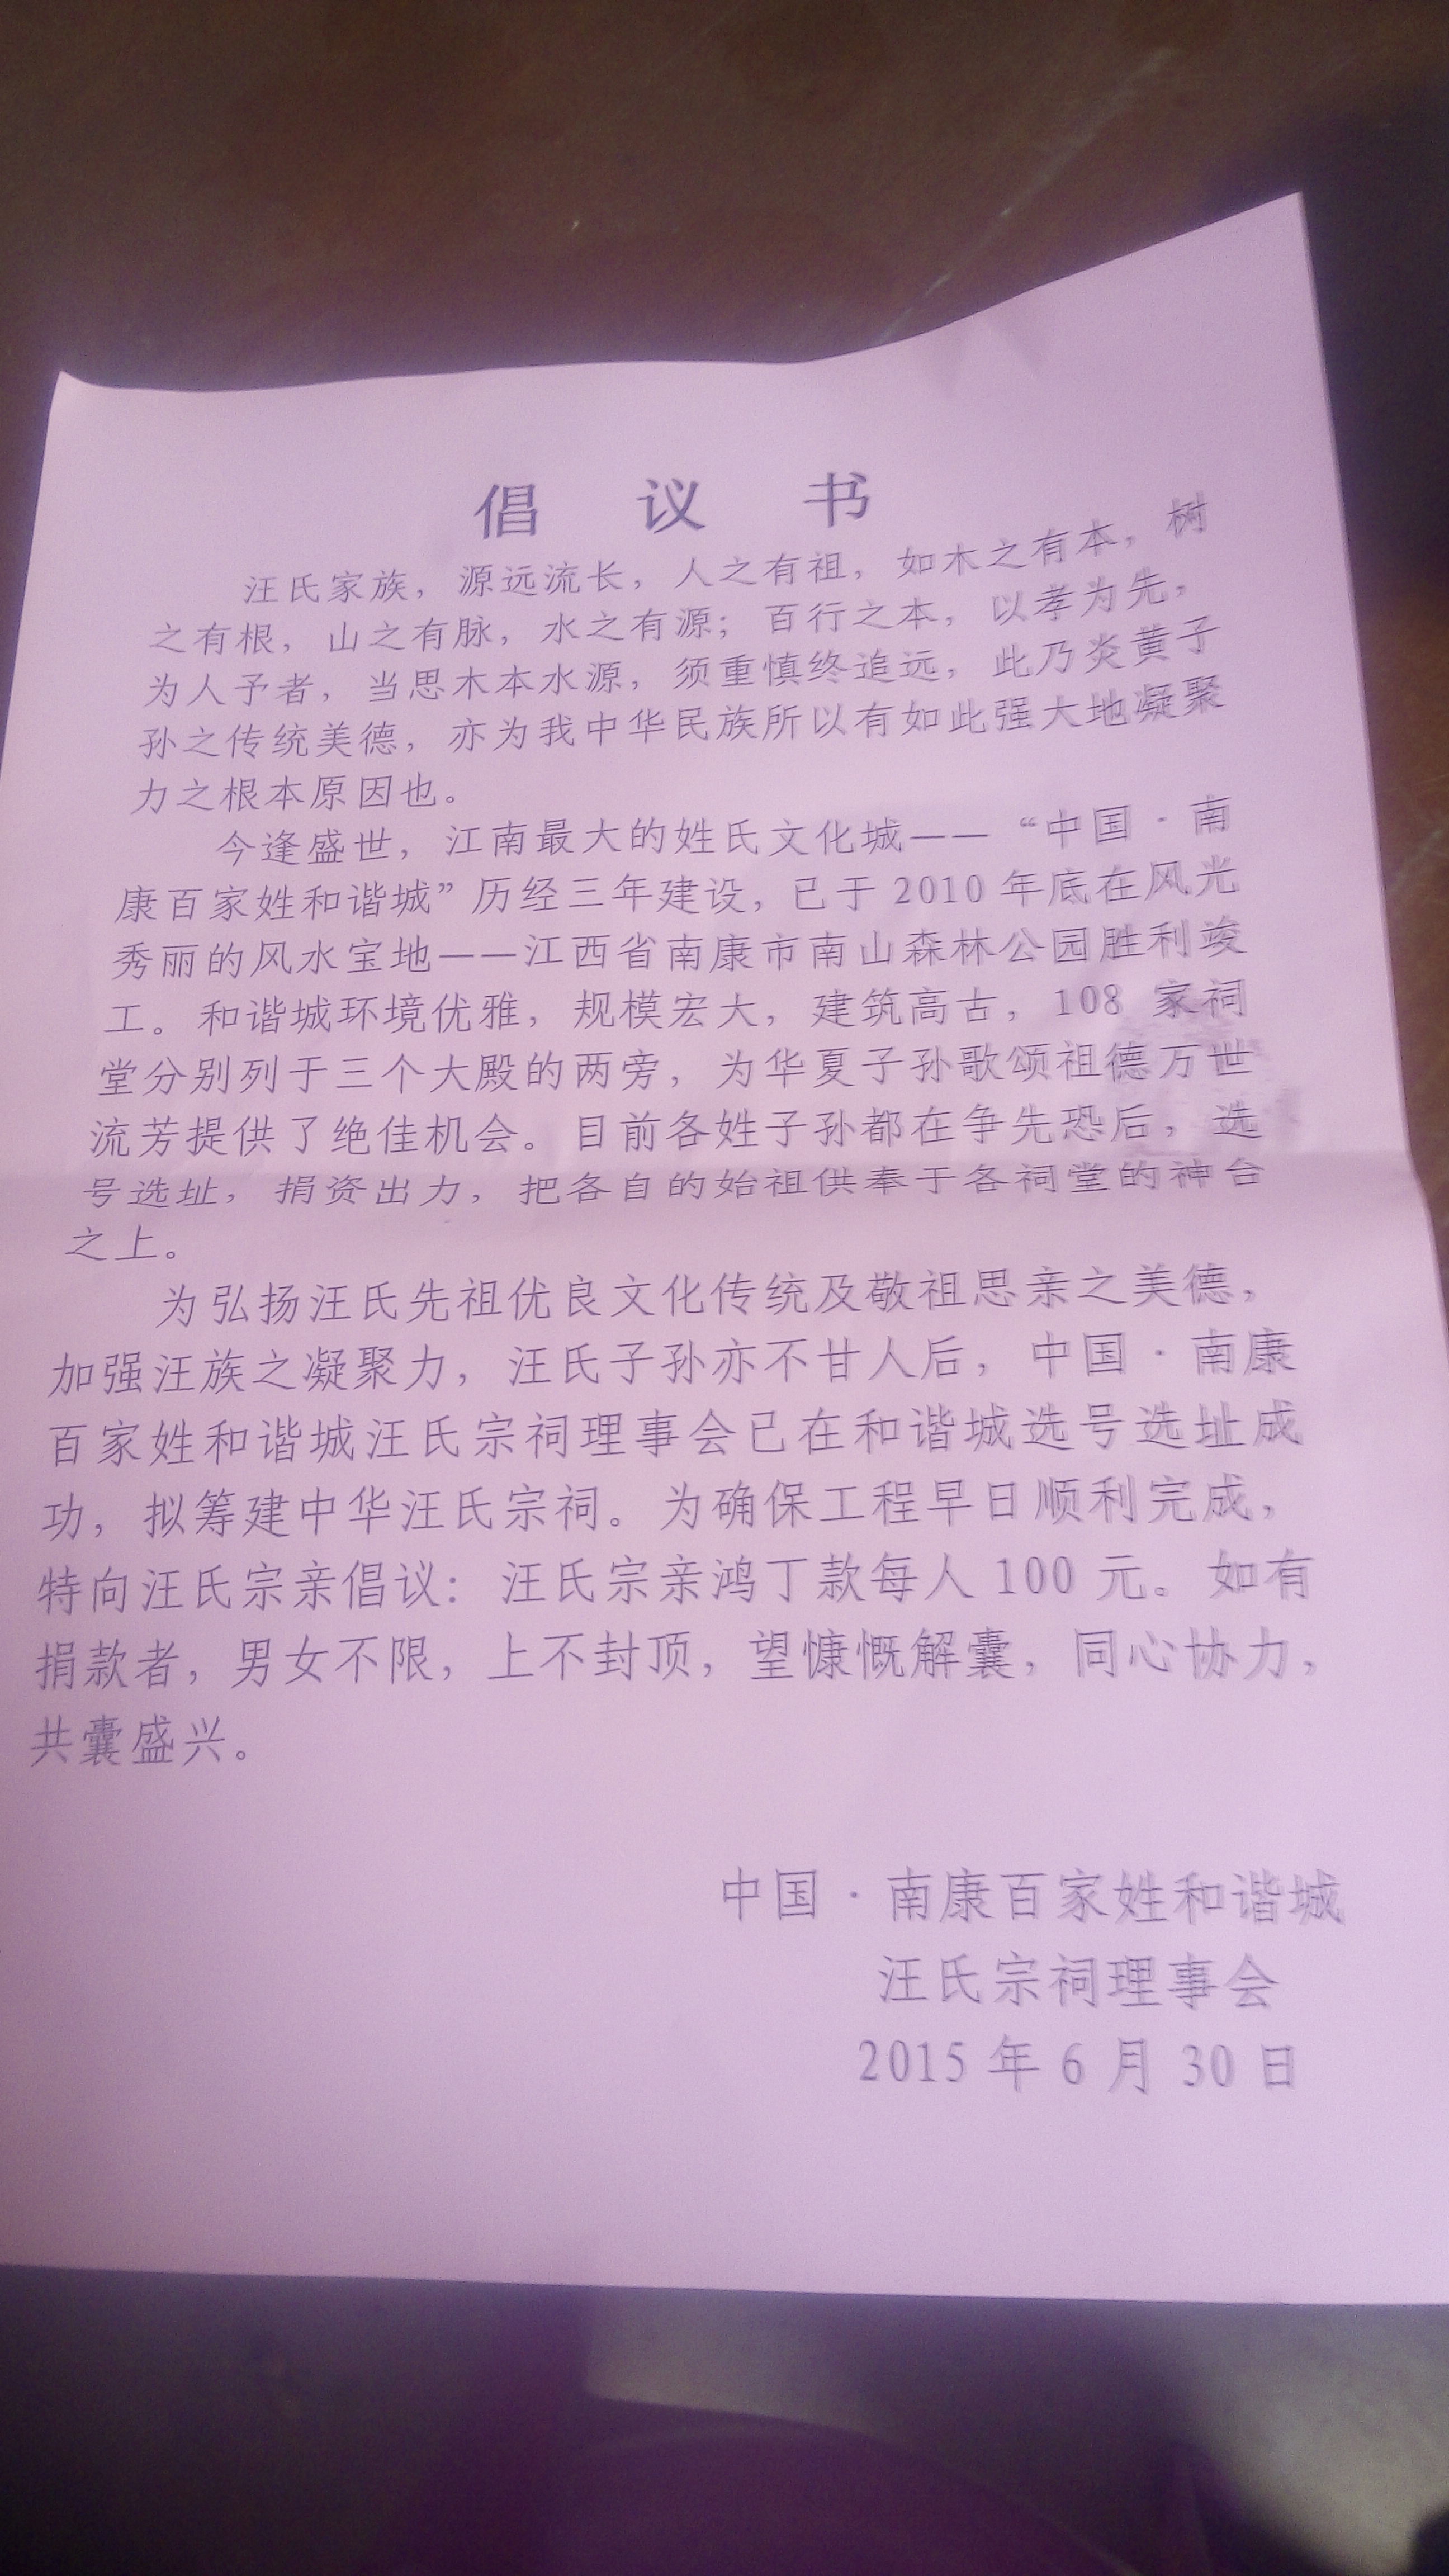 倡议书
汪氏家族，源远流长，人之有祖，如木之有本，树
之有根，山之有脉，水之有源；百行之本，以孝为先，
为人予者，当思木本水源，须重慎终追远，此乃炎黄子
孙之传统美德，亦为我中华民族所以有如此强大地凝聚
力之根本原因也。
今逢盛世，江南最大的姓氏文化城——“中国·南
康百家姓和谐城”历经三年建设，已于 2010 年底在风光
秀丽的风水宝地——江西省南康市南山森林公园胜利竣
工。和谐城环境优雅，规模宏大，建筑高古，108 家祠
堂分别列于三个大殿的两旁，为华夏子孙歌颂祖德万世
流芳提供了绝佳机会。目前各姓子孙都在争先恐后，选
号选址，捐资出力，把各自的始祖供奉于各祠堂的神台
之上。
为弘扬汪氏先祖优良文化传统及敬祖思亲之美德，
加强汪族之凝聚力，汪氏子孙亦不甘人后，中国·南康
百家姓和谐城汪氏宗祠理事会已在和谐城选号选址成
功，拟筹建中华汪氏宗祠。为确保工程早日顺利完成，
特向汪氏宗亲倡议：汪氏宗亲鸿丁款每人 100 元。如有
捐款者，男女不限，上不封顶，望慷慨解囊，同心协力，
共囊盛兴。
中国·南康百家姓和谐城
汪氏宗祠理事会
2015 年 6 月 30 日